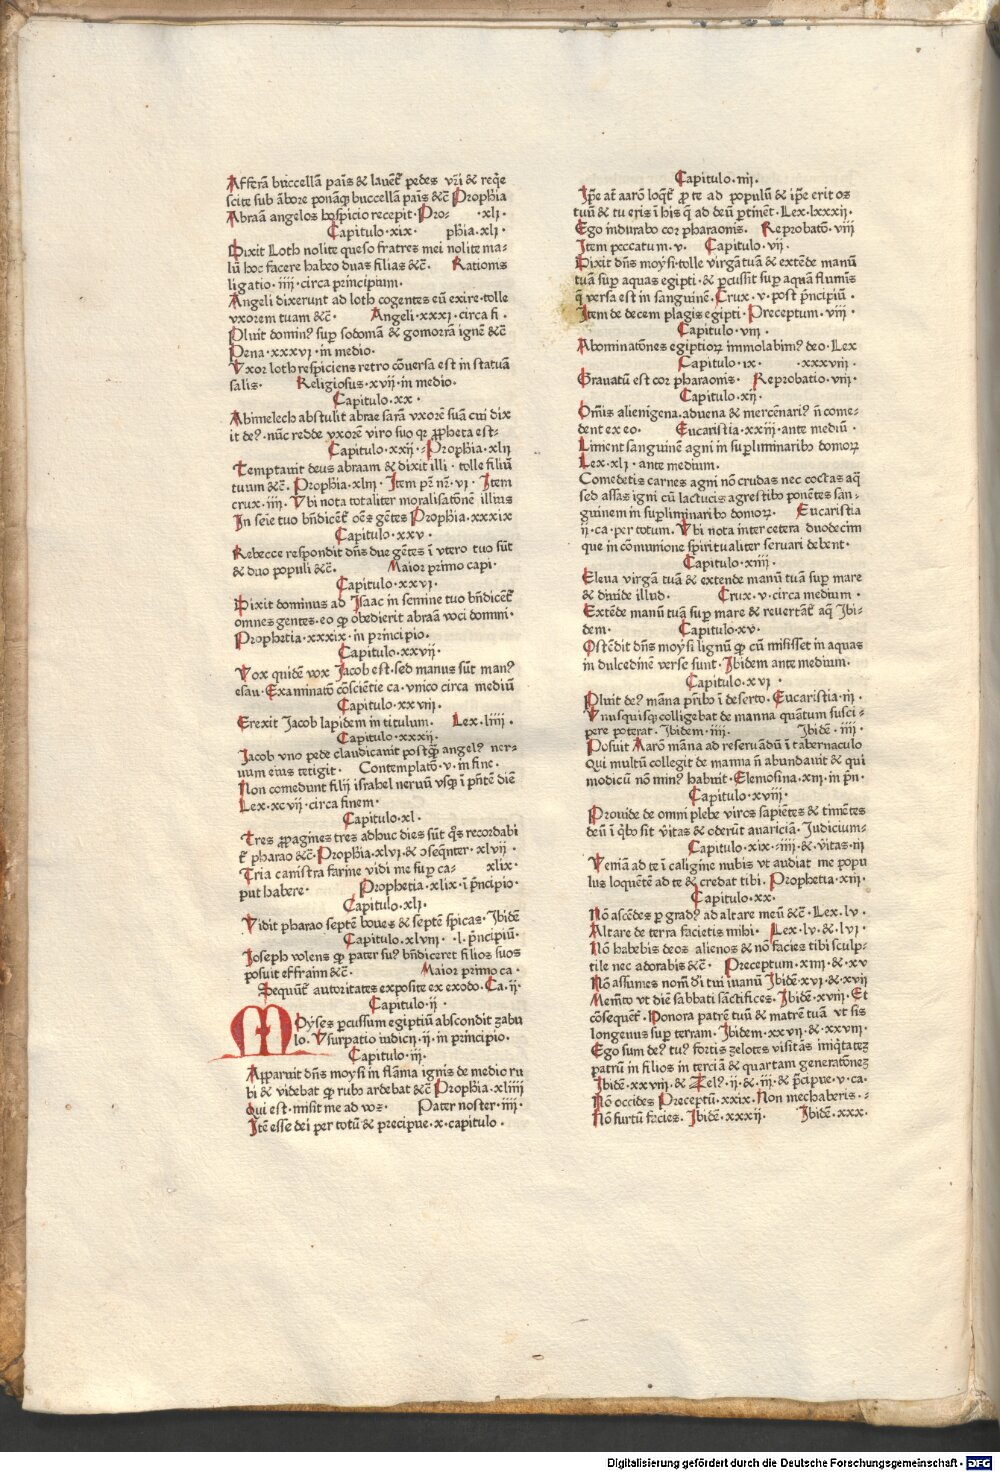 Afferā buccellā pāis & lauēt᷑ pedes vr̄i & reqͤe
scite sub ābore ponāqꝫ buccellā pāis &c̄ Prophīa
Abraā angelos hospicio recepit· Pro- ·xli·
Capitulo·xix· phīa·xli·
Dixit Loth nolite queso fratres mei nolite ma-
lū hoc facere habeo duas filias &c̄. Rationis
ligatio·iiii·circa principium.
Angeli dixerunt ad loth cogentes eū exire·tolle
vxorem tuam &c̄· Angeli·xxxi·circa fi·
Pluit dominꝰ sup̱ sodomā & gomorrā ignē &c̄
Pena·xxxvi·in medio.
Vxor loth respiciens retro cōuersa est in statuā
salis. Religiosus·xvii·in medio.
Capitulo·xx·
Abimelech abstulit abrae sarā vxorē suā cui dix
it deꝰ·nūc redde vxorē viro suo qꝛ ꝓpheta est-
Capitulo·xxii·-Prophīa·xlii
Temptauit deus abraam & dixit illi·tolle filiū
tuum &c̄. Prophīa·xliii· Item p̱ nē·vi· Item
crux·iiii·Vbi nota totaliter moralisatōnē illius
In seīe tuo bn̄dicēt᷑ oēs gētes Prophīa·xxxix
Capitulo·xxv·
Rebecce respondit dn̄s due gētes ī vtero tuo sūt
& duo populi &c̄. Maior primo capi·
Capitulo·xxvi·
Dixit dominus ad Isaac in semine tuo bn̄dicēt᷑
omnes gentes·eo ꝙ obedierit abraā voci domini·
Prophetia·xxxix·in principio.
Capitulo·xxvii·
Vox quidē vox Jacob est·sed manus sūt manꝰ
esau·Examinatō cōsciētie ca·vnico circa mediū
Capitulo·xxviii·
Erexit Jacob lapidem in titulum. Lex·liiii·
Capitulo·xxxii·
Jacob vno pede claudicauit postꝙ̄ angelꝰ ner-
uum eius tetigit· Contemplatō·v·in fine·
Non comedunt filij israhel neruū vsqꝫ ī p̄ntē diē
Lex·xcvii·circa finem·
Capitulo·xl·
Tres ꝓpagines tres adhuc dies sūt q̄s recordabi
t᷑ pharao &c̄·Prophīa·xlvi·& ɔseqn̄ter·xlvii·
Tria canistra farine vidi me sup̱ ca- xlix·
put habere· Prophetia·xlix·ī p̄ncipio·
Capitulo·xli·
Vidit pharao septē boues & septē spicas·Ibidē
Capitulo·xlviii·.i.p̄ncipiū·
Joseph volens ꝙ pater suꝰ bn̄diceret filios suos
posuit effraim &c̄· Maior primo ca·
Sequūt᷑ autoritates exposite ex exodo·Ca·ii·
Capitulo·ii·
MOyses p̱cussum egiptiū abscondit zabu
lo·Vsurpatio iudicii·ii·in principio·
Capitulo·iii·
Apparuit dn̄s moysi in flāma ignis de medio ru
bi & videbat ꝙ rubꝰ ardebat &c̄ Prophīa·xliiii
Qui est·misit me ad vos· Pater noster·iiii·
Itē esse dei per totū & precipue·x·capitulo·
Capitulo·iiii·
Ip̄e at̄ aarō loqt᷑ pro te ad populū & ip̄e erit os
tuū & tu eris ī his q̄ ad deū p̱tinēt·Lex·lxxxii·
Ego indurabo cor pharaonis. Reprobatō·viii
Item peccatum·v· Capitulo·vii·
Dixit dn̄s moysi·tolle virgā tuā & extēde manū
tuā sup̱ aquas egipti·& p̱cussit sup̱ aquā fluminis
q̄ versa est in sanguinē·Crux·v·post p̄ncipiū·
Item de decem plagis egipti·Preceptum·viii·
Capitulo·viii·
Abominatōnes egiptioꝝ immolabimꝰ deo·Lex
Capitulo·ix· ·xxxviii·
Grauatū est cor pharaonis· Reprobatio·viii·
Capitulo·xii·
Om̄is alienigena·aduena & mercēnariꝰ n̄ come-
dent ex eo· Eucaristia·xxiii·ante mediū·
Liniēt sanguinē agni in sup̱liminaribꝰ domoꝝ
Lex·xli·ante medium.
Comedetis carnes agni nō crudas nec coctas aqͣ
sed assas igni cū lactucis agrestibꝰ ponētes san-
guinem in sup̱liminaribꝰ domoꝝ· Eucaristia
ii·ca·per totum·Vbi nota inter cetera duodecim
que in cōmunione spiritualiter seruari debent·
Capitulo·xiiii·
Eleua virgā tuā & extende manū tuā sup̱ mare
& diuide illud· Crux·v·circa medium·
Extēde manū tuā sup̱ mare & reuertāt᷑ aq̄ Ibi-
dem· Capitulo·xv·
Ostēdit dn̄s moysi lignū ꝙ cū misisset in aquas
in dulcedinē verse sunt·Ibidem ante medium·
Capitulo·xvi·
Pluit deꝰ māna p̄ribꝰ ī deserto·Eucaristia·iii·
Vnusquisqꝫ colligebat de manna quātum suffici-
pere poterat·Ibidem·iiii· Ibidē·iiii·
Posuit Aarō māna ad reseruādū ī tabernaculo
Qui multū collegit de manna n̄ abundauit & qui
modicū nō minꝰ habuit·Elemosina·xiii·in p̄n·
Capitulo·xviii·
Prouide de omni plebe viros sapiētes & timētes
deū ī qͥbꝰ sit vitas & oderūt auariciā·Iudicium-
Capitulo·xix·-iiii·& vitas·iii
Veniā ad te ī caligine nubis vt audiat me popu
lus loquētē ad te & credat tibi·Prophetia·xiii·
Capitulo·xx·
Nō ascēdes p̱ gradꝰ ad altare meū &c̄·Lex·lv·
Altare de terra facietis mihi· Lex·lv·&·lvi·
Nō habebis deos alienos & nō facies tibi sculp-
tile nec adorabis &c̄· Preceptum·xiiii·&·xv
Nō assumes nom̄ d̄i tui ī uanū Ibidē·xvi·&·xvii
Memēto vt diē sabbati sāctifices·Ibidē·xviii·Et
cōsequēt᷑·Honora patrē tuū & matrē tuā vt sis
longeuus sup̱ terram·Ibidem·xxvii·&·xxviii·
Ego sum deꝰ tuꝰ fortis zelotes visitās iniqͥtateꝫ
patrū in filios in terciā & quartam generatōneꝫ
Ibidē·xxviii·& Zelꝰ·ii·&·iii·& p̄cipue·v·ca·
Nō occides Preceptū·xxix·Non mechaberis·-
Nō furtū facies·Ibidē·xxxii· Ibidē·xxx·
Digitalisierung gefördert durch die Deutsche Forschungsgemeinschaft - DFG